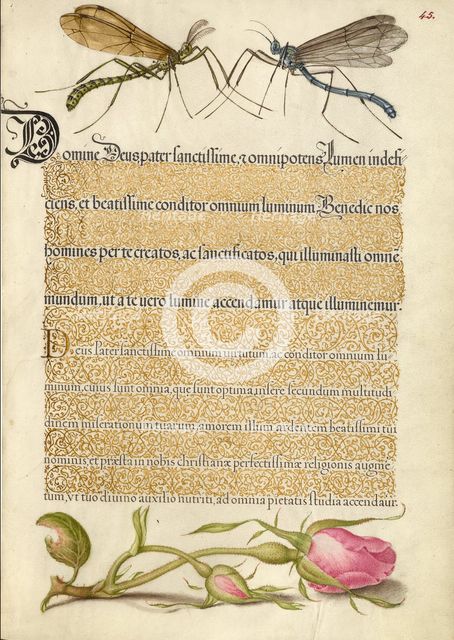 45.
Domine Deus pater sanctissime, & omnipotens, Lumen indefi
ciens, et beatissime conditor omnium luminum Benedic nos
homines per te creatos, ac sanctificatos, qui illuminasti omnē
mundum, ut a te vero lumine accendamur atque illuminemur.
Deus Pater sanctissime omnium virtutum, ac conditor omnium lu
minum, cuius sunt omnia, que sunt optima, insere secundum multitudi
dinem miserationum tuarum, amorem illum ardentem beatissimi tui
nominis, et præsta in nobis christianæ perfectissimæ religionis augmē
tum, vt tuo diuino auxilio nutriti, ad omnia pietatis studia accendaur.
©